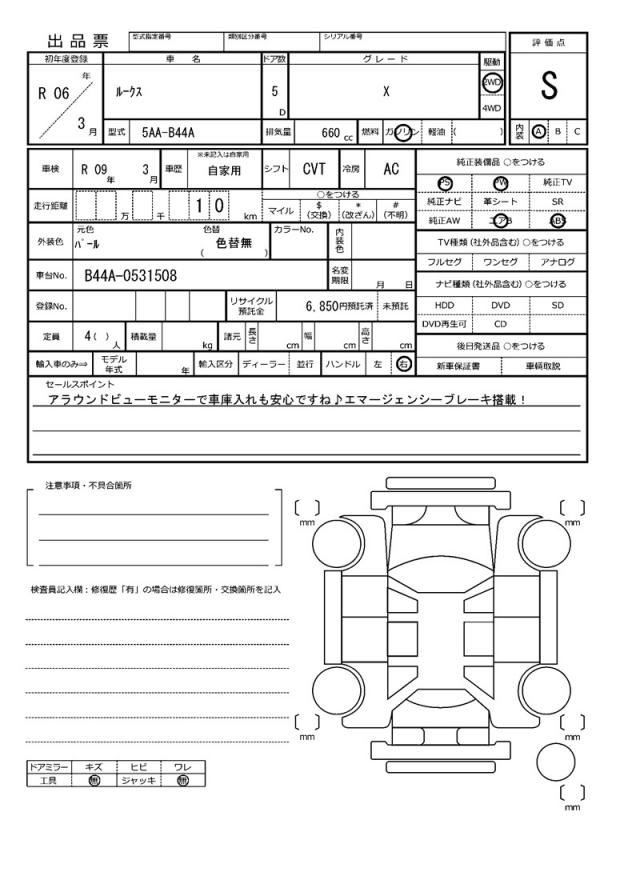 出品票
型式指定番号 類別区分番号 シリアル番号
評価点
初年度登録 車名 ドア数 グレード 駆動
R 06 年 3 月
ルークス
5 D
X
2WD
4WD
S
型式 5AA-B44A 排気量 660 cc 燃料 ガソリン 軽油 ( )
内装 A B C
車検 R 09 年 3 月 車歴 ※未記入は自家用 自家用 シフト CVT 冷房 AC
純正装備品 ○をつける
PS PW 純正TV
純正ナビ 革シート SR
純正AW エアB ABS
走行距離 万 千 1 0 km
○をつける
マイル $(交換) *(改ざん) #(不明)
外装色 元色 パール 色替 色替無 ( ) カラーNo. 内装色
TV種類(社外品含む)○をつける
フルセグ ワンセグ アナログ
車台No. B44A-0531508 名変期限 月 日
ナビ種類(社外品含む)○をつける
HDD DVD SD
DVD再生可 CD
登録No. リサイクル預託金 6,850円預託済 未預託
定員 4( )人 積載量 kg 諸元 長さ cm 幅 cm 高さ cm
後日発送品 ○をつける
新車保証書 車輌取説
輸入車のみ⇒ モデル年式 年 輸入区分 ディーラー 並行 ハンドル 左 右
セールスポイント
アラウンドビューモニターで車庫入れも安心ですね♪エマージェンシーブレーキ搭載！
注意事項・不具合箇所
検査員記入欄：修復歴「有」の場合は修復箇所・交換箇所を記入
mm
mm
mm
mm
mm
ドアミラー キズ ヒビ ワレ
工具 無 ジャッキ 無